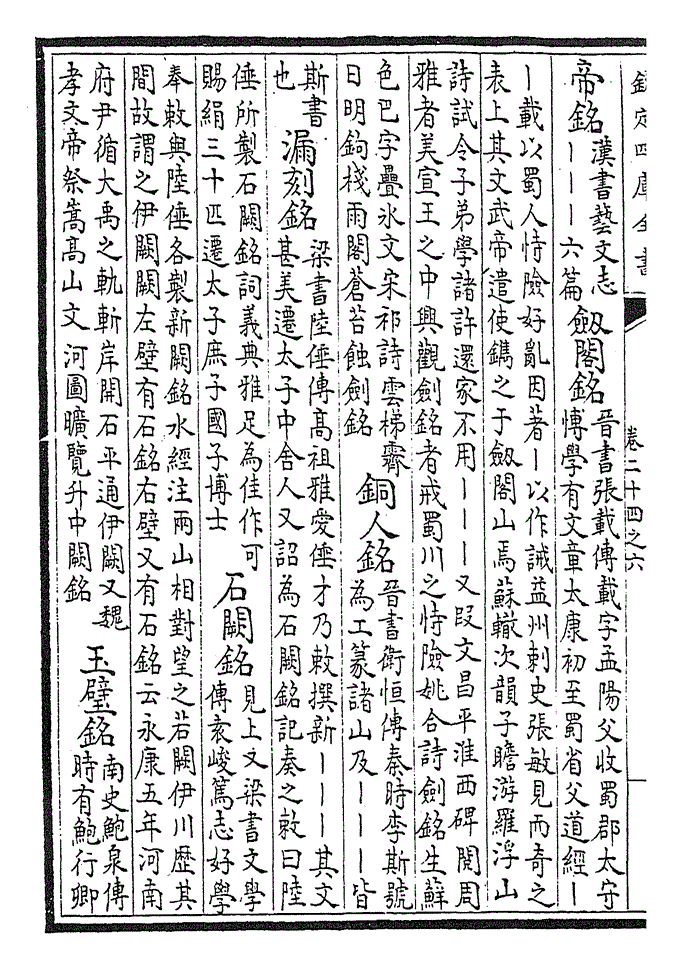 欽定四庫全書
卷二十四之六
帝銘
漢書藝文志
｜｜｜六篇
劔閣銘
晉書張載傳載字孟陽父收蜀郡太守
博學有文章太康初至蜀省父道經｜
｜載以蜀人恃險好亂因著｜以作誡益州刺史張敏見而奇之
表上其文武帝遣使鐫之于劔閣山焉蘇轍次韻子瞻游羅浮山
詩試令子弟學諸許還家不用｜｜｜又段文昌平淮西碑閱周
雅者美宣王之中興觀劍銘者戒蜀川之恃險姚合詩劍銘生蘚
色巴字疊冰文宋祁詩雲梯霽
日明鉤棧雨閣蒼苔蝕劍銘
銅人銘
晉書衛恒傳秦時李斯號
為工篆諸山及｜｜｜皆
斯書
也
漏刻銘
梁書陸倕傳高祖雅愛倕才乃敕撰新｜｜｜其文
甚美遷太子中舍人又詔為石闕銘記奏之敕曰陸
倕所製石闕銘詞義典雅足為佳作可
賜絹三十匹遷太子庶子國子博士
石闕銘
見上又梁書文學
傳袁峻篤志好學
奉敕與陸倕各製新闕銘水經注兩山相對望之若闕伊川歷其
間故謂之伊闕闕左壁有石銘右壁又有石銘云永康五年河南
府尹循大禹之軌斬岸開石平通伊闕又魏
孝文帝祭嵩高山文河圖曠覽升中闕銘
玉璧銘
南史鮑泉傳
時有鮑行卿